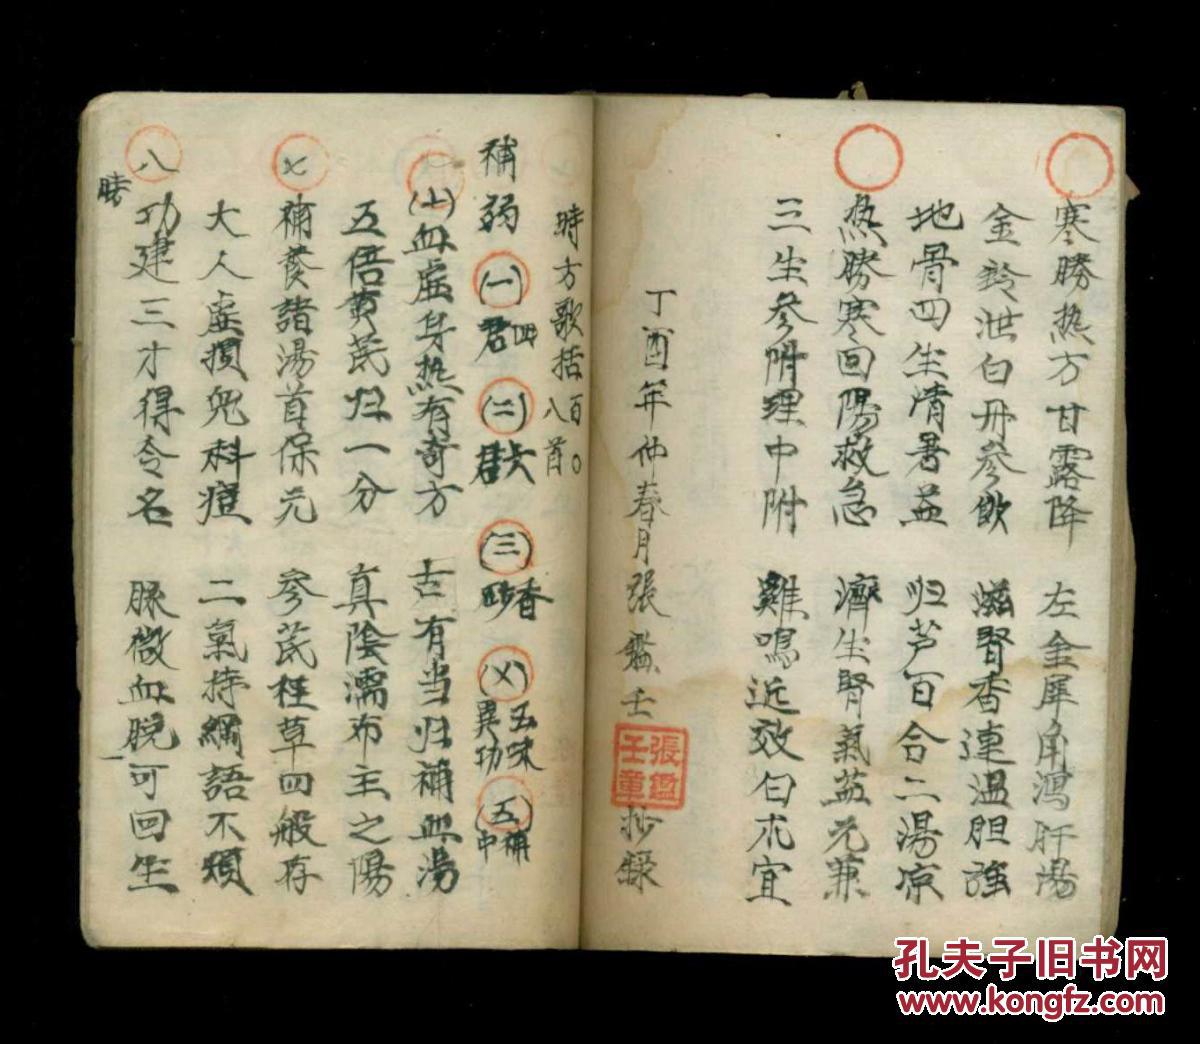 寒勝热方甘露降 左金犀角瀉肝湯
金鈴泄白丹參飲 滋腎香連温胆強
地骨四生清暑益 归芦百合二湯凉
热勝寒回陽救急 濟生腎氣益元兼
三生參附理中附 雞鳴近效白朮宜
丁酉年仲春月張鑑壬 抄録
張鑑壬章
時方歌括百〇八首
補弱 (一)四君 (二)六君 (三)香砂 (乂)五味異功 (五)補中
(六)血虛身热有奇方 古有当归補血湯
五倍黄芪归一分 真陰濡布主之陽
七 補養諸湯首保元 參芪桂草四般存
大人虛損兒科痘 二氣持綱語不煩
八 功建三才得令名 脉微血脱可回生
孔夫子旧书网
www.kongfz.com